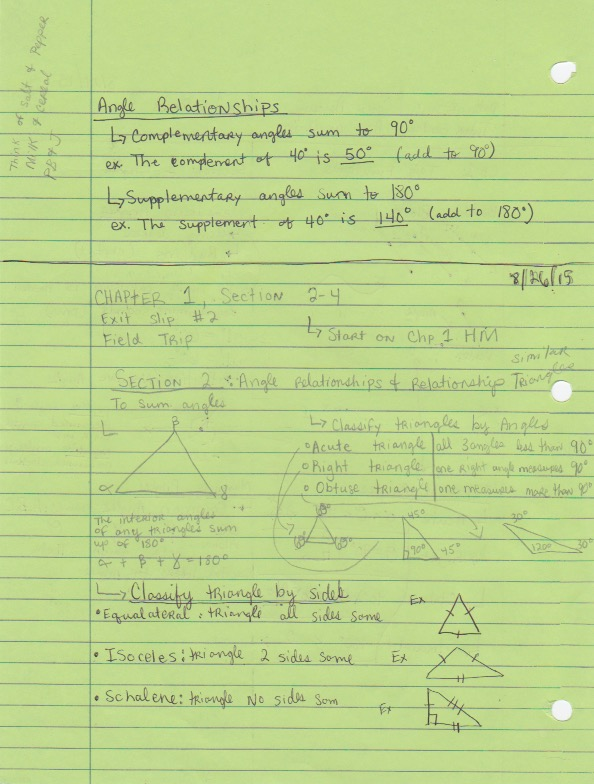 Think of Salt & Pepper
Milk & Cereal
PB & J
Angle Relationships
↳ Complementary angles sum to 90°
ex. The complement of 40° is 50° (add to 90°)
↳ Supplementary angles sum to 180°
ex. The supplement of 40° is 140° (add to 180°)
8/26/15
CHAPTER 1, Section 2-4
Exit slip #2
↳ Start on Chp. 1 HM
Field Trip
SECTION 2: Angle Relationships & Relationships Similar Triangles
To sum angles
↳ Classify triangles by Angles
• Acute triangle | all 3 angles less than 90°
• Right triangle | one Right angle measures 90°
• Obtuse triangle | one measures more than 90°
β
α γ
The interior angles
of any triangles sum
up of 180°
α + β + γ = 180°
45°
90° 45°
20°
120° 30°
↳ Classify triangle by sides
• Equalateral: triangle all sides same Ex
• Isoceles: triangle 2 sides same Ex
• Schalene: triangle No sides som Ex